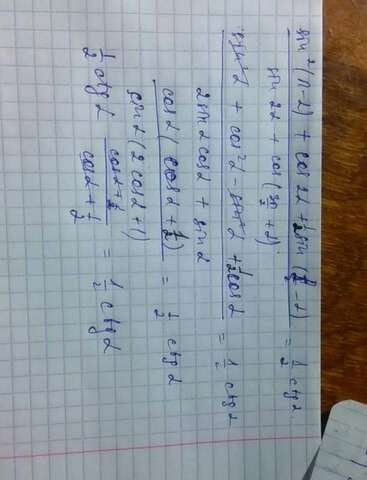 sin²(π-α) + cos 2α + ½ sin (π/2 - α) / sin 2α + cos (3π/2 + α) = ½ ctg α
sin²α + cos²α - sin²α + ½ cos α / 2 sin α cos α + sin α = ½ ctg α
cos α (cos α + ½) / sin α (2 cos α + 1) = ½ ctg α
½ ctg α cos α + ½ / cos α + ½ = ½ ctg α